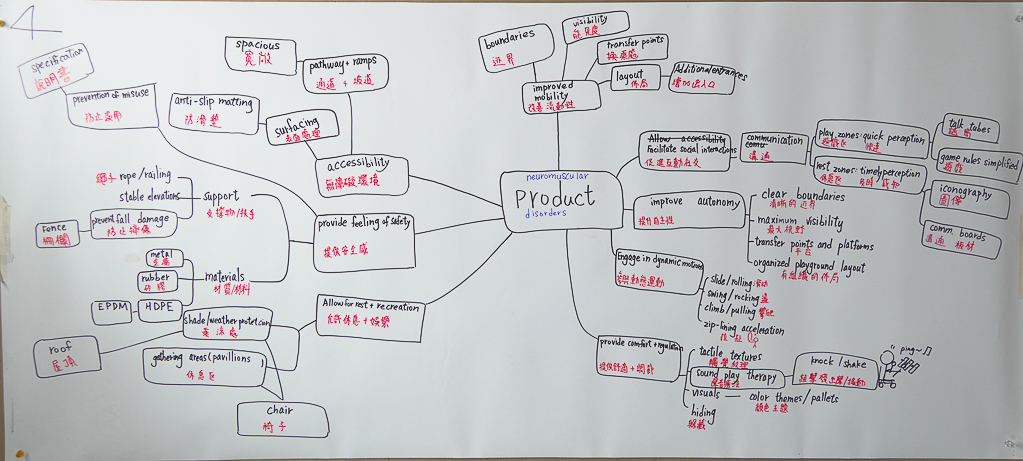 4
specification
說明書
prevention of misuse
防止濫用
spacious
寬敞
pathway + ramps
通道 + 坡道
anti-slip matting
防滑墊
surfacing
表面處理
accessibility
無障礙環境
boundaries
邊界
visibility
能見度
transfer points
layout
佈局
Additional entrances
增加出入口
improved
mobility
改善流動性
Allow accessibility
Facilitate social interactions
促進互動社交
communication
溝通
play zones: quick perception
遊戲區 快速
rest zones: timely perception
休息區 及時 感知
talk tubes
game rules simplified
遊戲
iconography
圖像
comm. boards
溝通 板材
neuromuscular
Product
disorders
improve autonomy
提升自主性
clear boundaries
清晰的边界
maximum visibility
最大視野
transfer points and platforms
平台
organized playground layout
有組織的佈局
Engage in dynamic motions
參與動態運動
slide/rolling 滑动
swing/rocking
climb/pulling 攀爬
zip-lining acceleration
provide comfort + regulation
提供舒適 + 調節
tactile textures
觸覺紋理
sound play therapy
visuals — color themes/pallets
顏色主題
hiding
躲藏
knock / shake
ping~
provide feeling of safety
提供安全感
support
支撐物/扶手
繩子 rope/railing
stable elevations
prevent fall damage
防止摔傷
Fence
柵欄
materials
材質/材料
metal
金屬
rubber
矽膠
HDPE
EPDM
Allow for rest + recreation
允許休息 + 娛樂
shade/weather protetcion
乘涼處
roof
屋頂
gathering areas (pavillions)
休息區
chair
椅子